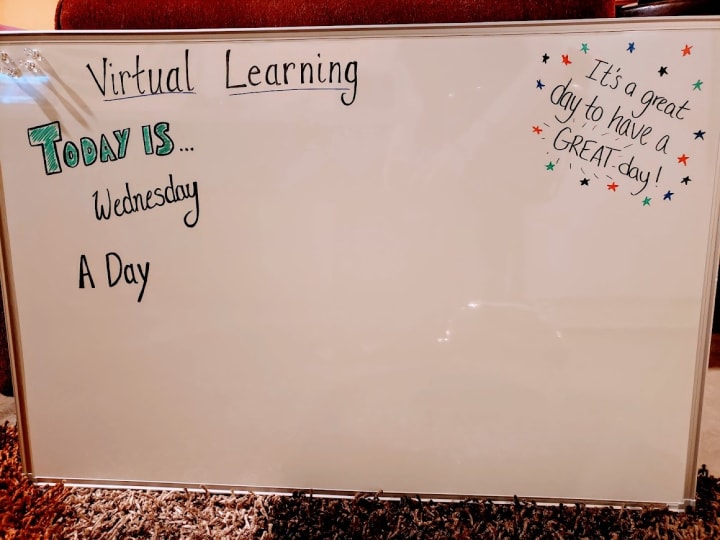 Virtual Learning
TODAY IS...
Wednesday
A Day
It's a great
day to have a
GREAT day!